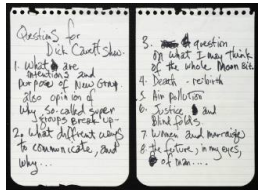 Questions for
Dick Cavett Show.
1. What are
intentions and
purpose of New Group.
also opinion of
why so-called super
groups break up -
2. what different ways
to communicate, and
why...
3. question
on what I may think
of the whole Moon Bit.
4. Death - rebirth
5. Air pollution
6. Justice
and
blindfolds
7. Women and marriage
8. the future, in my eyes,
of man....